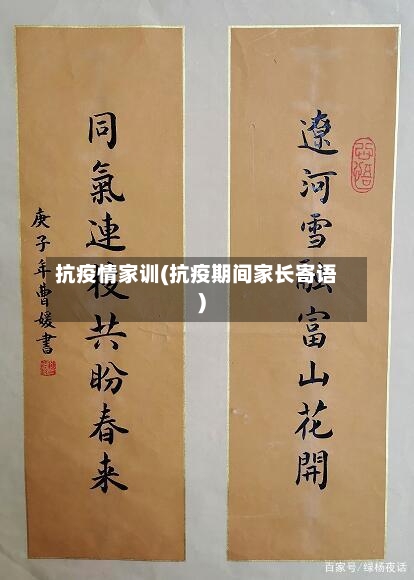 遼河雪融富山花開
同氣連枝共盼春来
庚子年曹媛書
抗疫情家训(抗疫期间家长寄语
)
百家号/绿杨夜话